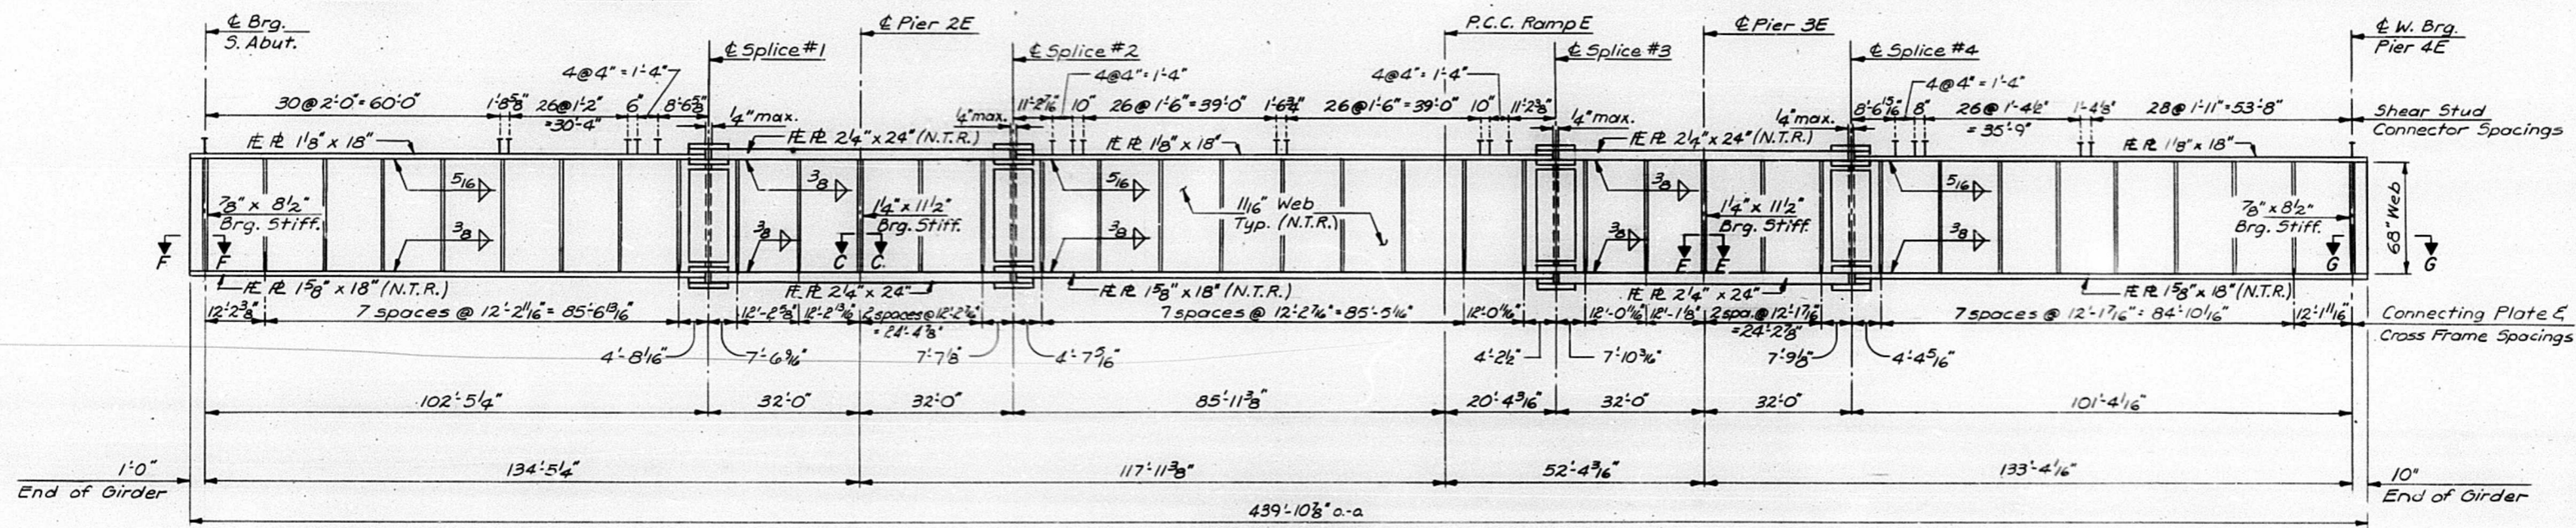 ℄ Brg.
S. Abut.
℄ Splice #1
℄ Pier 2E
℄ Splice #2
P.C.C. Ramp E
℄ Splice #3
℄ Pier 3E
℄ Splice #4
℄ W. Brg.
Pier 4E
4@4" = 1'-4"
4@4" = 1'-4"
4@4" = 1'-4"
4@4" = 1'-4"
30@2'-0" = 60'-0"
1'-8 5/8"
26@1'-2"
= 30'-4"
6"
8'-6 5/8"
1/4" max.
1/4" max.
11'-2 7/16"
10"
26@1'-6" = 39'-0"
1'-6 3/4"
26@1'-6" = 39'-0"
10"
11'-2 3/8"
1/4" max.
1/4" max.
8'-6 15/16"
8"
26@1'-4 1/2"
= 35'-9"
1'-4 1/8"
28@1'-11" = 53'-8"
Shear Stud
Connector Spacings
FL PL 1 1/8" x 18"
FL PL 2 1/4" x 24" (N.T.R.)
FL PL 1 1/8" x 18"
FL PL 2 1/4" x 24" (N.T.R.)
FL PL 1 1/8" x 18"
5/16
3/8
5/16
3/8
5/16
7/8" x 8 1/2"
Brg. Stiff.
1 1/4" x 11 1/2"
Brg. Stiff.
11/16" Web
Typ. (N.T.R.)
1 1/4" x 11 1/2"
Brg. Stiff.
7/8" x 8 1/2"
Brg. Stiff.
68" Web
3/8
3/8
3/8
3/8
3/8
F F
C C
E E
G G
FL PL 1 5/8" x 18" (N.T.R.)
FL PL 2 1/4" x 24"
FL PL 1 5/8" x 18" (N.T.R.)
FL PL 2 1/4" x 24"
FL PL 1 5/8" x 18" (N.T.R.)
12'-2 3/8"
7 spaces @ 12'-2 11/16" = 85'-6 13/16"
12'-2 5/8"
12'-2 13/16"
2 spaces @ 12'-2 7/16"
= 24'-4 7/8"
7 spaces @ 12'-2 7/16" = 85'-5 1/16"
12'-0 1/16"
12'-0 11/16"
12'-1 1/8"
2 spa. @ 12'-1 7/16"
= 24'-2 7/8"
7 spaces @ 12'-1 7/16" = 84'-10 1/16"
12'-1 11/16"
Connecting Plate &
Cross Frame Spacings
4'-8 1/16"
7'-6 9/16"
7'-7 1/8"
4'-7 5/16"
4'-2 1/2"
7'-10 3/16"
7'-9 1/8"
4'-4 5/16"
102'-5 1/4"
32'-0"
32'-0"
85'-11 3/8"
20'-4 3/16"
32'-0"
32'-0"
101'-4 1/16"
1'-0"
End of Girder
134'-5 1/4"
117'-11 3/8"
52'-4 3/16"
133'-4 1/16"
10"
End of Girder
439'-10 7/8" o.-a.